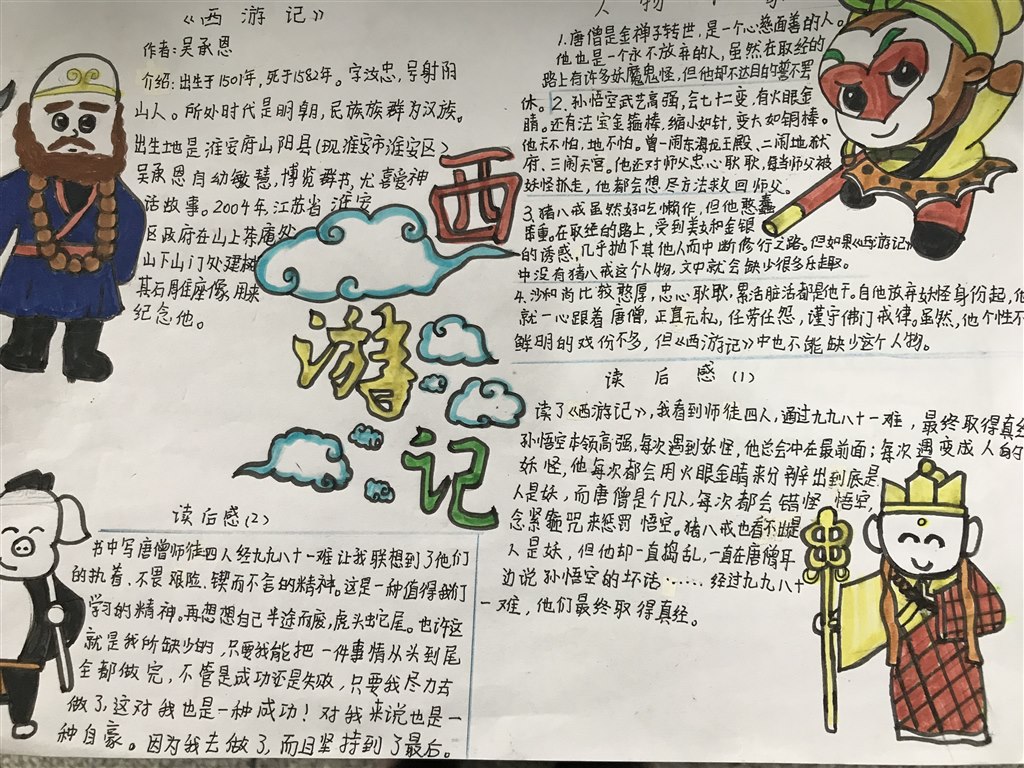 《西游记》
作者:吴承恩
介绍:出生于1501年,死于1582年。字汝忠,号射阳
山人。所处时代是明朝,民族族群为汉族。
出生地是淮安府山阳县(现淮安市淮安区)
吴承恩自幼敏慧,博览群书,尤喜爱神
话故事。2004年,江苏省淮安
区政府在山上茶庵处
山下山门处建树
其石雕座像,用来
纪念他。
西
游
记
人物
1.唐僧是金禅子转世,是一个心慈面善的人。
他也是一个永不放弃的人,虽然在取经的
路上有许多妖魔鬼怪,但他却不达目的誓不罢
休。2.孙悟空武艺高强,会七十二变,有火眼金
睛。还有法宝金箍棒,缩小如针,变大如铜棒。
他天不怕,地不怕。曾一闹东海龙王殿、二闹地狱
府、三闹天宫。他还对师父忠心耿耿,每当师父被
妖怪抓走,他都会想尽方法救回师父。
3.猪八戒虽然好吃懒作,但他憨态
在取经的路上,受到美女和金银
的诱惑,几乎抛下其他人而中断修行之路。但如果《西游记》
中没有猪八戒这个人物,文中就会缺少很多乐趣。
4.沙和尚比较憨厚,忠心耿耿,累活脏活都是他干。自他放弃妖怪身份起,他
就一心跟着唐僧,正直无私,任劳任怨,谨守佛门戒律。虽然,他个性不
鲜明的戏份不多,但《西游记》中也不能缺少这个人物。
读后感(1)
读了《西游记》,我看到师徒四人,通过九九八十一难,最终取得真经
孙悟空本领高强,每次遇到妖怪,他总会冲在最前面;每次遇变成人的
妖怪,他每次都会用火眼金睛来分辨出到底是
人是妖,而唐僧是个凡人,每次都会错怪悟空,
念紧箍咒来惩罚悟空。猪八戒也看不出是
人是妖,但他却一直捣乱,一直在唐僧耳
边说孙悟空的坏话……经过九九八十
一难,他们最终取得真经。
读后感(2)
书中写唐僧师徒四人经九九八十一难让我联想到了他们
的执着、不畏艰险、锲而不舍的精神。这是一种值得我们
学习的精神。再想想自己半途而废,虎头蛇尾。也许这
就是我所缺少的,只要我能把一件事情从头到尾
全都做完,不管是成功还是失败,只要我尽力去
做了,这对我也是一种成功!对我来说也是一
种自豪。因为我去做了,而且坚持到了最后。